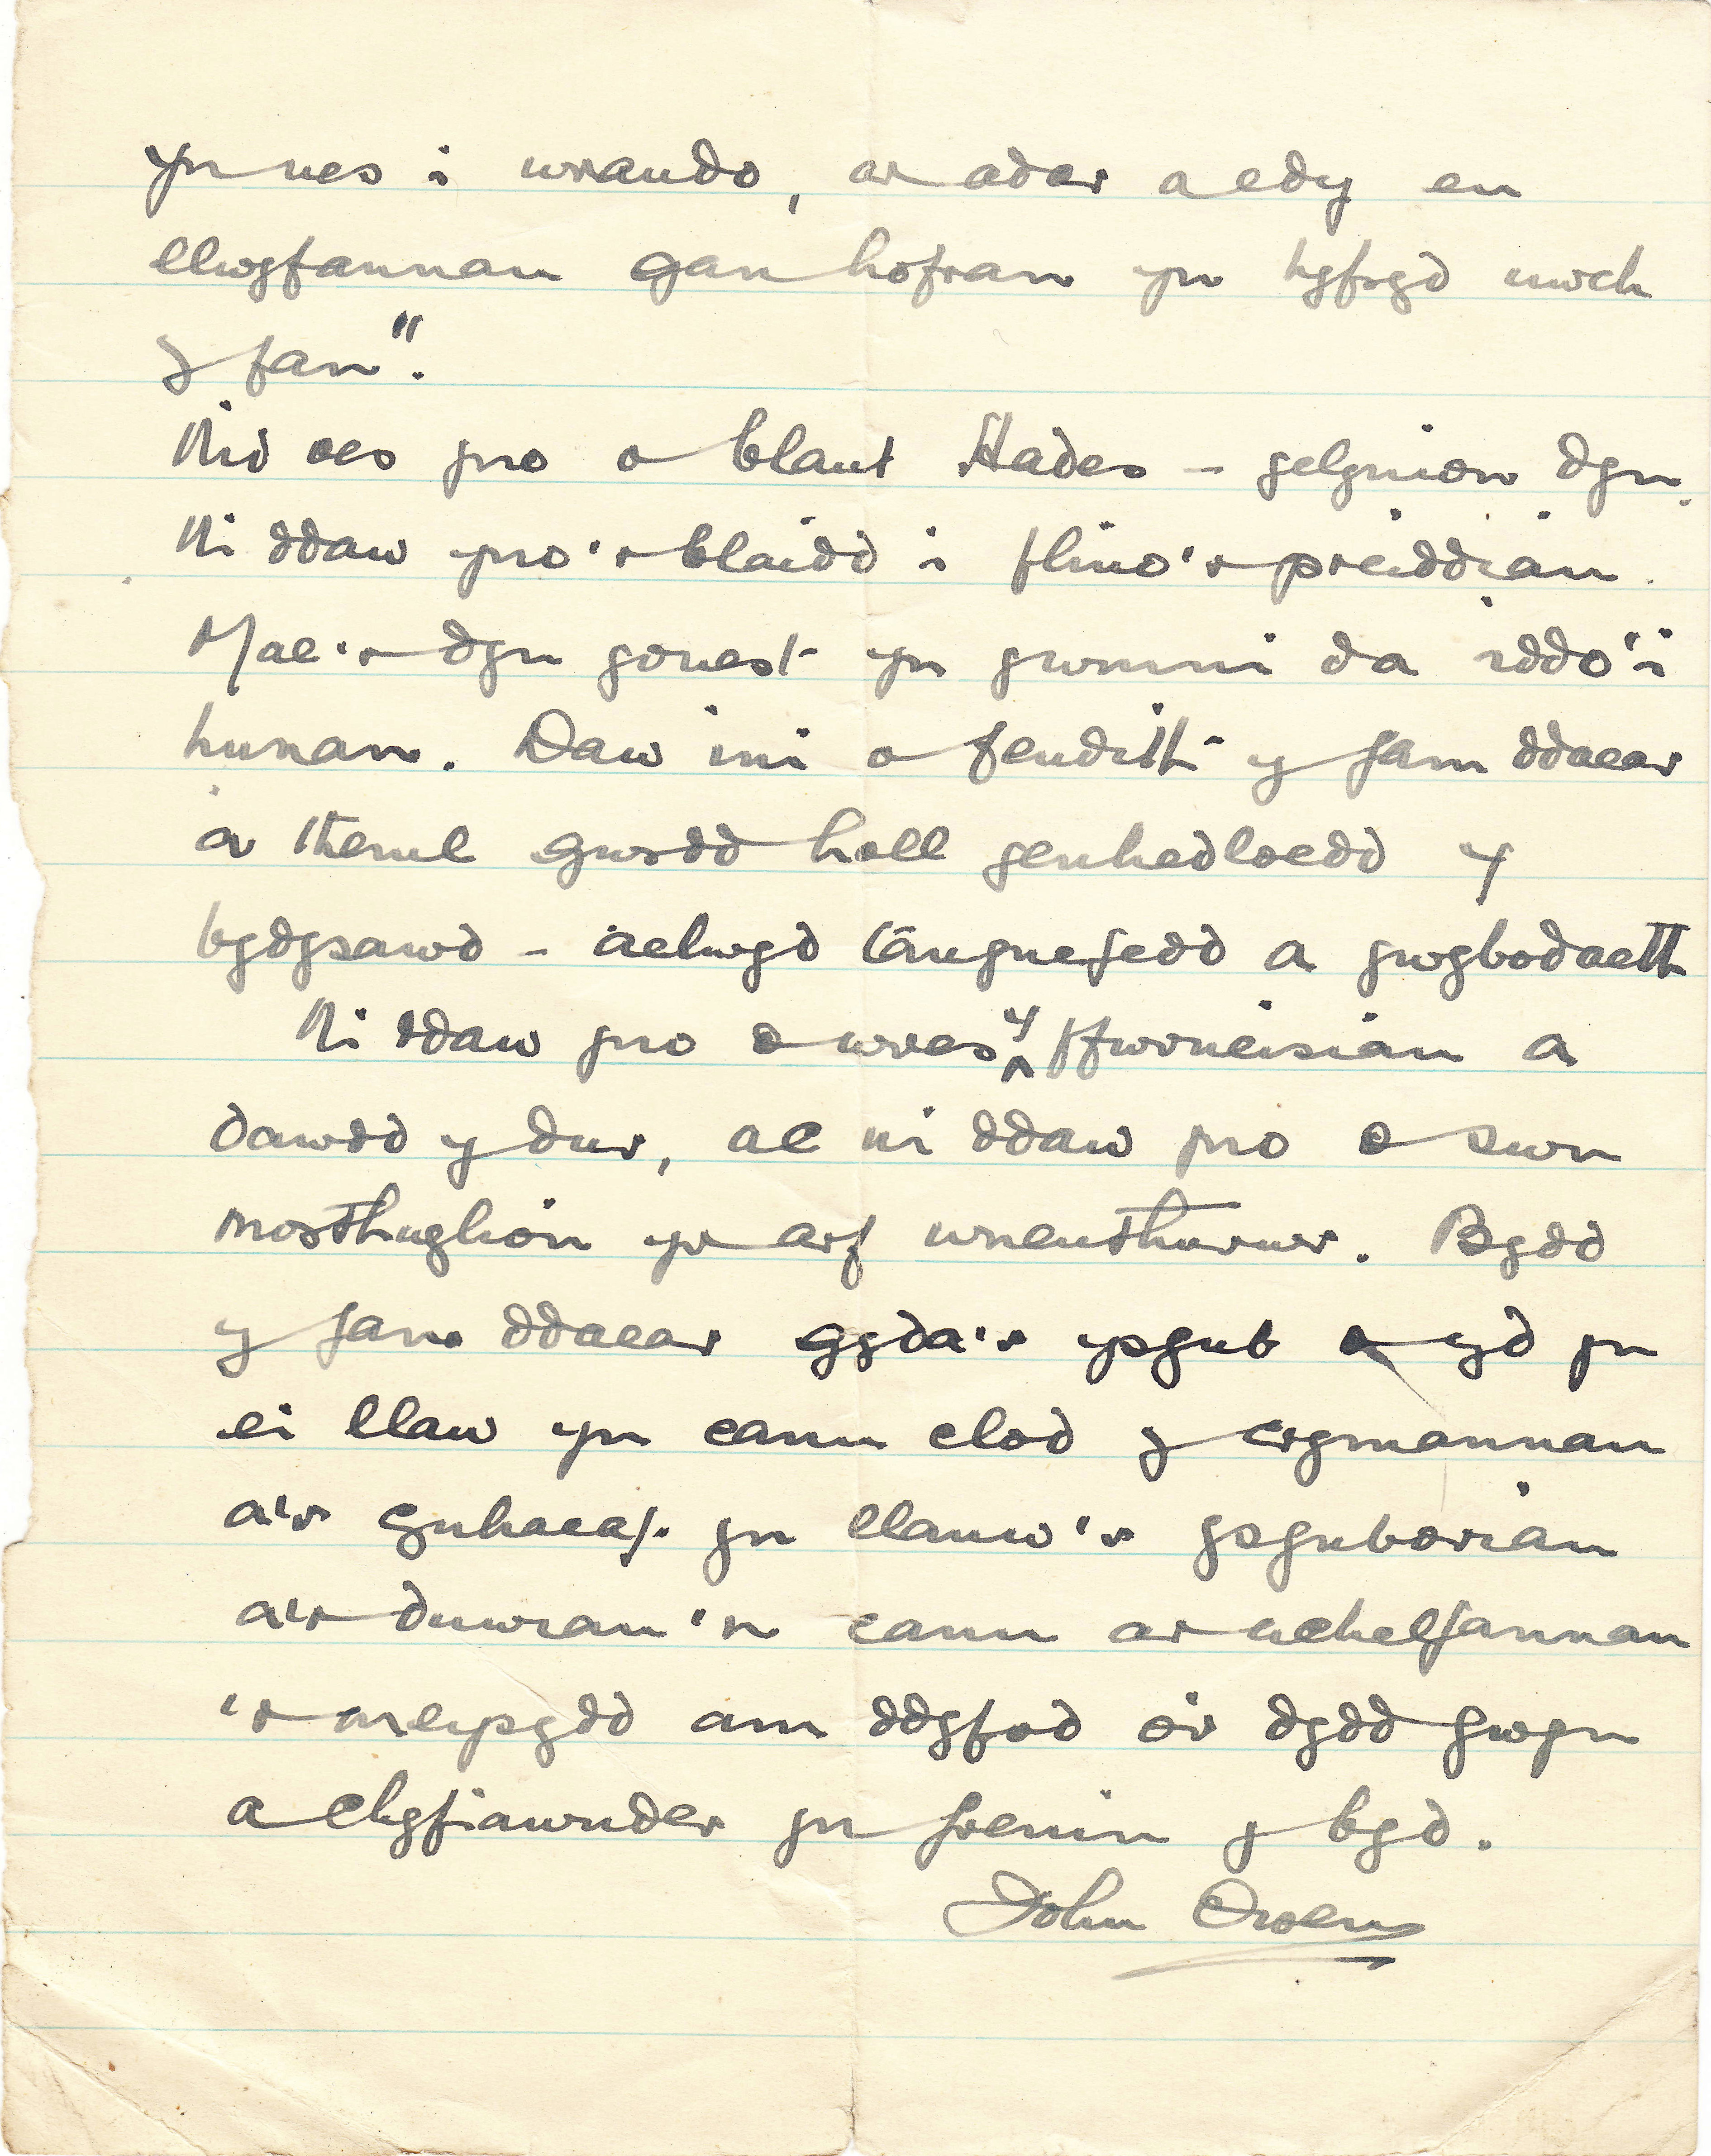 yn nes i wrando, a'r adar a edy eu
llwyfannau gan hofran yn hyfryd uwch
y fan".
Nid oes yno o blant Hades – gelynion dyn.
Ni ddaw yno'r blaidd i flino'r preiddiau.
Mae'r dyn gonest yn gwmni da iddo'i
hunan. Daw ini o fendith y fam ddaear
a theml gwrdd holl genhedloedd y
bydysawd – aelwyd tangnefedd a gwybodaeth
Ni ddaw yno o wres y ffwrneisiau a
dawdd y dur, ac ni ddaw yno o swn
morthwylion yr arf wneuthurwr. Bydd
y fam ddaear gyda'r ysgub o yd yn
ei llaw yn canu clod y crymannau
a'r cynhaeaf yn llanw'r ysguboriau
a'r duwiau'n canu ar uchelfannau
'r meysydd am ddyfod o'r dydd gwyn
a chyfiawnder yn frenin y byd.
John Owen